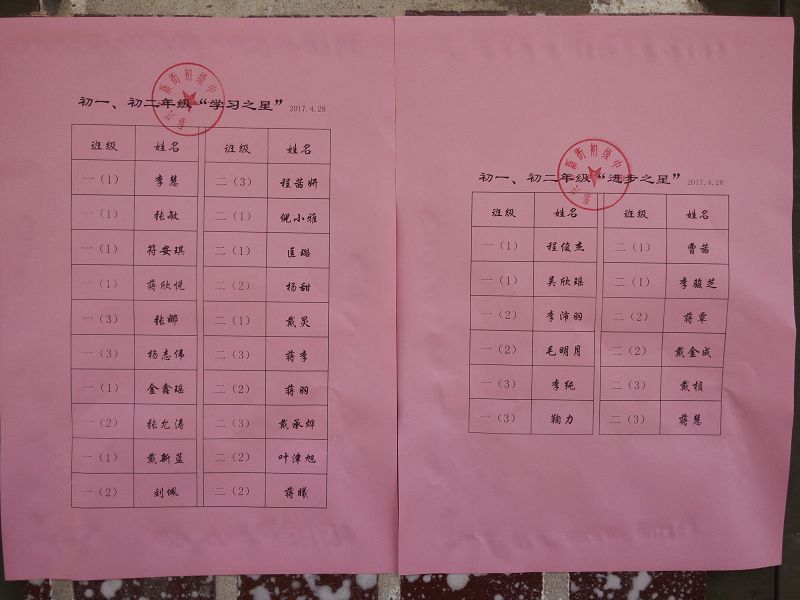 初一、初二年级“学习之星” 2017.4.28
班级 姓名 班级 姓名
一（1） 李慧 二（3） 程茜妍
一（1） 张敏 二（1） 倪小雅
一（1） 符安琪 二（1） 匡璐
一（1） 蒋欣悦 二（2） 杨甜
一（3） 张娜 二（1） 戴炅
一（3） 杨志伟 二（3） 蒋李
一（1） 金鑫瑶 二（2） 蒋羽
一（2） 张允涛 二（3） 戴承烨
一（1） 戴新蓝 二（2） 叶津旭
一（2） 刘佩 二（2） 蒋曦
初一、初二年级“进步之星” 2017.4.28
班级 姓名 班级 姓名
一（1） 程俊杰 二（1） 曹茜
一（1） 吴欣瑶 二（1） 李骏芝
一（2） 李沛羽 二（2） 蒋覃
一（2） 毛明月 二（2） 戴金成
一（3） 李纯 二（3） 戴桢
一（3） 鞠力 二（3） 蒋慧